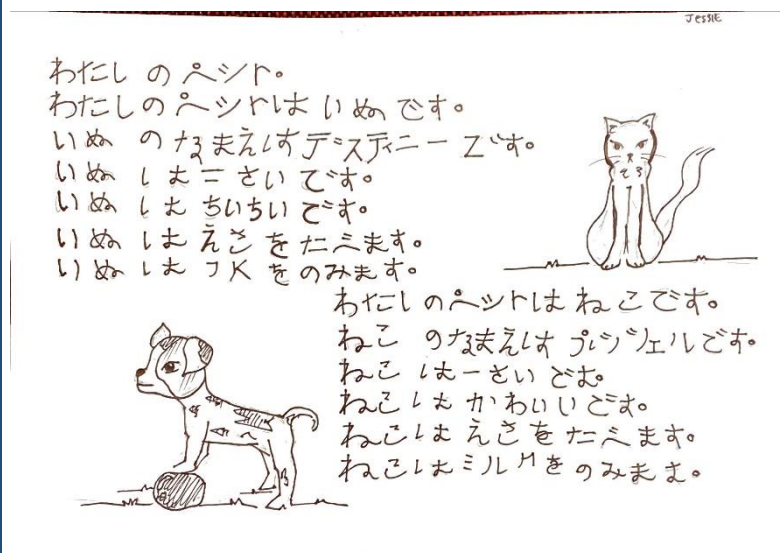 Jessie
わたし の ペット。
わたしの ペットは いぬ です。
いぬ の なまえは デスティニー です。
いぬ は 二 さい です。
いぬ は ちいちい です。
いぬ は えさ を たべます。
いぬ は 水 を のみます。
わたし の ペットは ねこ です。
ねこ のなまえは です。
ねこ は 一 さい です。
ねこは かわいい です。
ねこは えさ を たべます。
ねこは ミルク を のみます。